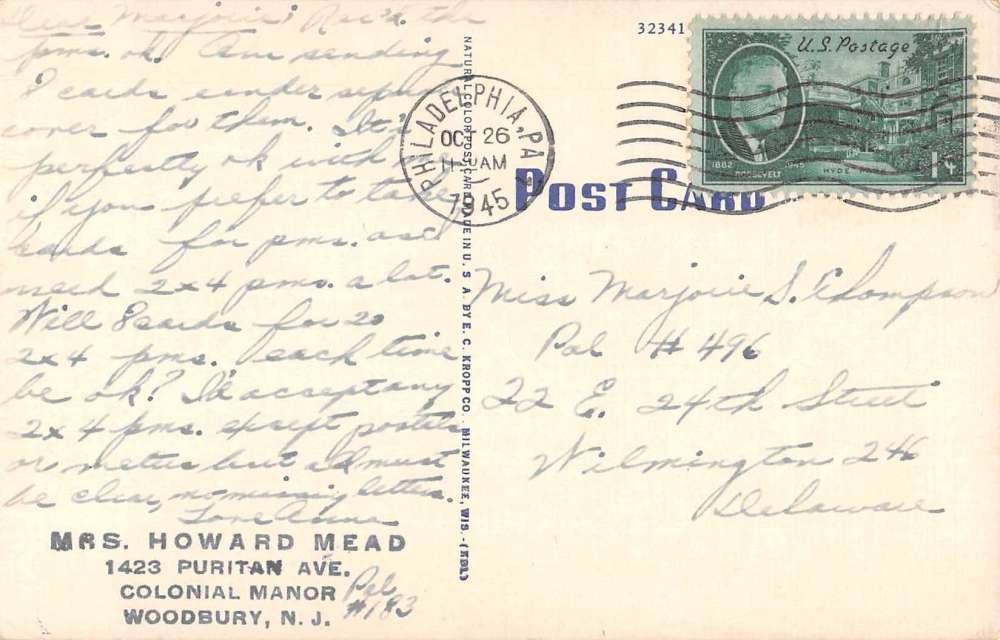 Dear Marjorie: Rec'd the
pms. ok. Am sending
8 cards under separate
cover for them. It's
perfectly ok with
if you prefer to take
cards for pms. as I
need 2x4 pms. a lot.
Will 8 cards for 20
2x4 pms. each time
be ok? I'll accept any
2x4 pms. except postels
or meters but all must
be clear, no missing letters.
Love Anne
MRS. HOWARD MEAD
1423 PURITAN AVE.
COLONIAL MANOR
WOODBURY, N. J.
Pal
#183
NATURAL COLOR POST CARD MADE IN U. S. A. BY E. C. KROPP CO. MILWAUKEE, WIS.
32341
PHILADELPHIA, PA
OC 26
AM
1945
POST CARD
U.S. Postage
1882 1945
ROOSEVELT
HYDE PARK
1¢
Miss Marjorie S. Thompson
Pal # 496
22 E. 24th Street
Wilmington 246
Delaware